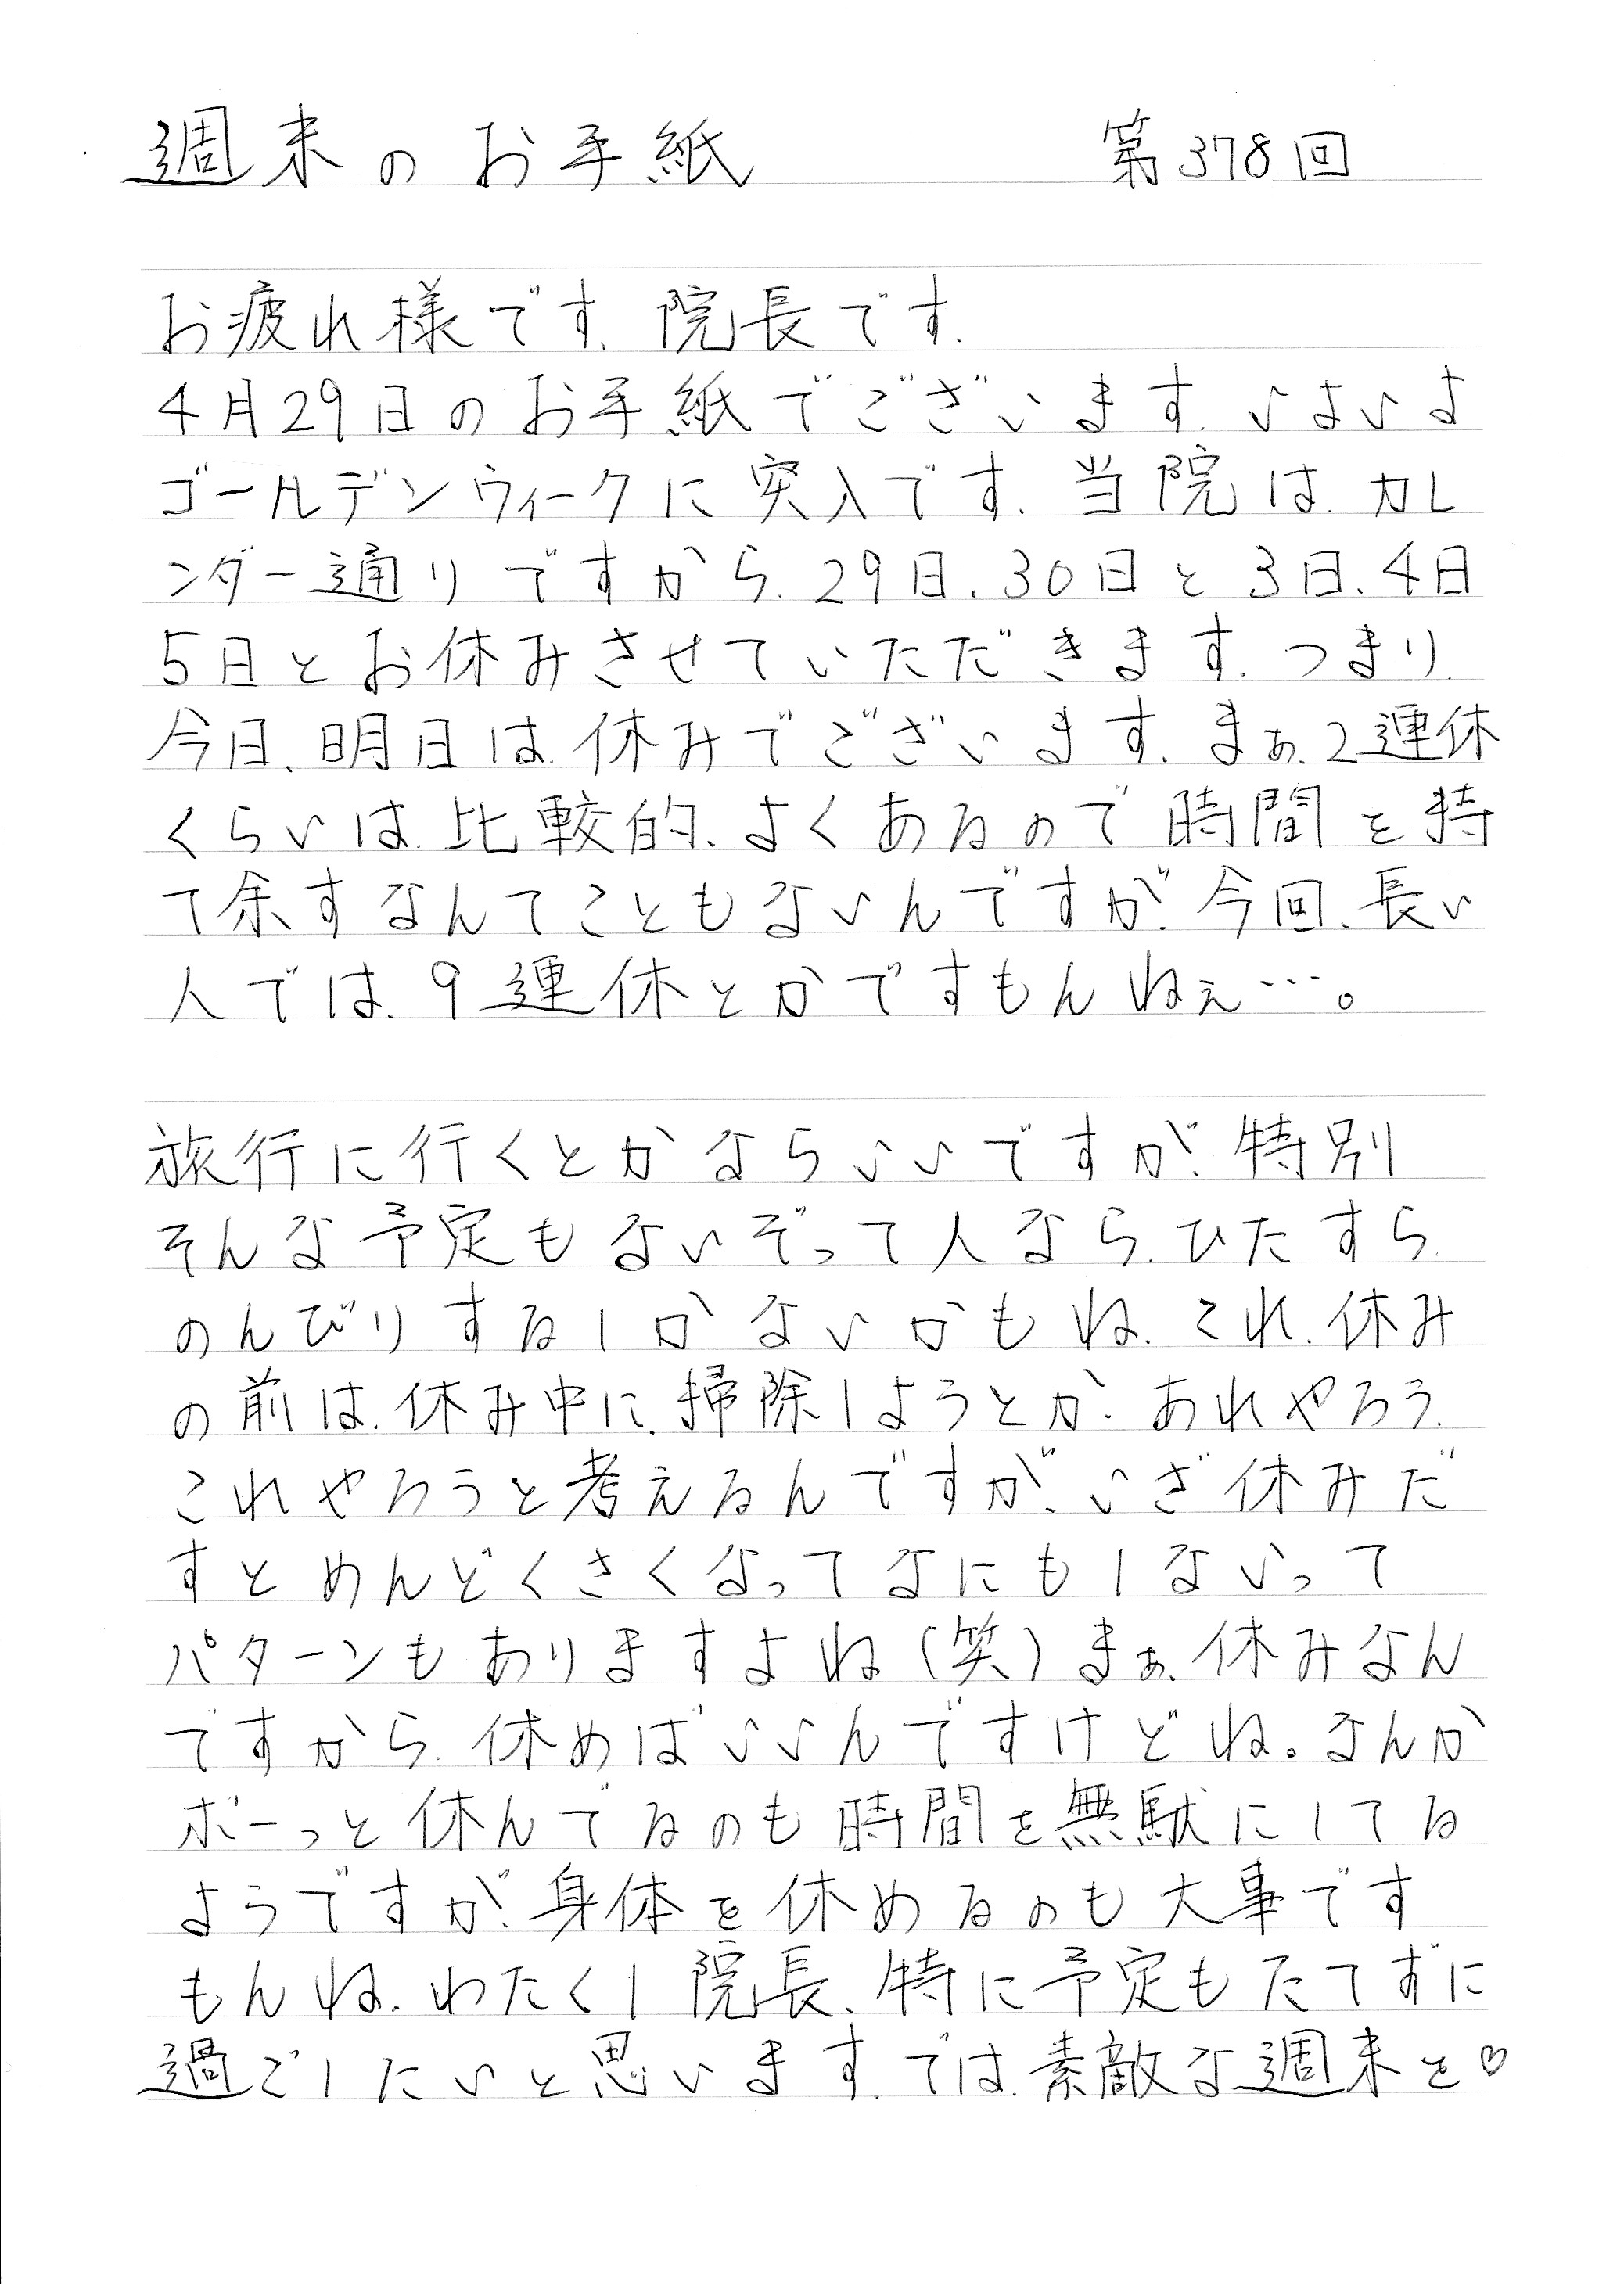 週末のお手紙 第378回
お疲れ様です、院長です。
4月29日のお手紙でございます。いよいよ
ゴールデンウィークに突入です。当院は、カレ
ンダー通りですから、29日、30日と3日、4日
5日とお休みさせていただきます。つまり、
今日、明日は、休みでございます。まぁ、2連休
くらいは、比較的、よくあるので時間を持
て余すなんてこともないんですが、今回、長い
人では、9連休とかですもんねぇ…。
旅行に行くとかならいいですが、特別
そんな予定もないぞって人なら、ひたすら、
のんびりするしかないかもね、これ、休み
の前は、休み中に、掃除しようとか、あれやろう、
これやろうと考えるんですが、いざ休みだ
すとめんどくさくなってなにもしないって
パターンもありますよね(笑)まぁ、休みなん
ですから、休めばいいんですけどね。なんか
ボーっと休んでるのも時間を無駄にしてる
ようですが、身体を休めるのも大事です
もんね、わたくし院長、特に予定もたてずに
過ごしたいと思います。では、素敵な週末を♡